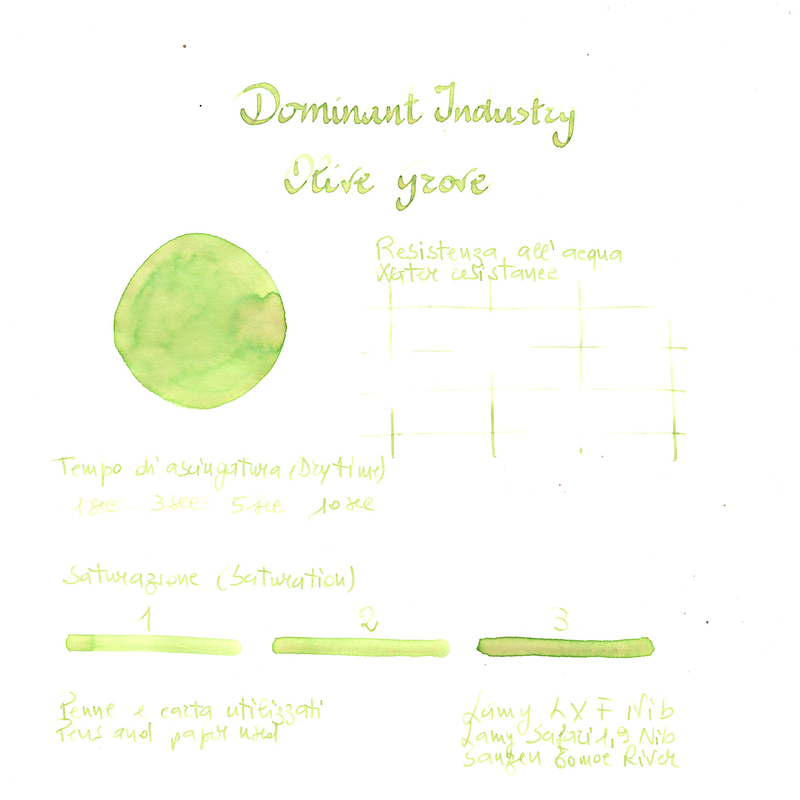 Dominant Industry
Olive grove
Resistenza all'acqua
Water resistance
Tempo di asciugatura (Dry time)
1 sec 3 sec 5 sec 10 sec
Saturazione (Saturation)
1 2 3
Penne e carta utilizzati
Pens and paper used
Lamy LX F Nib
Lamy Safari 1,9 Nib
Sanzen Tomoe River